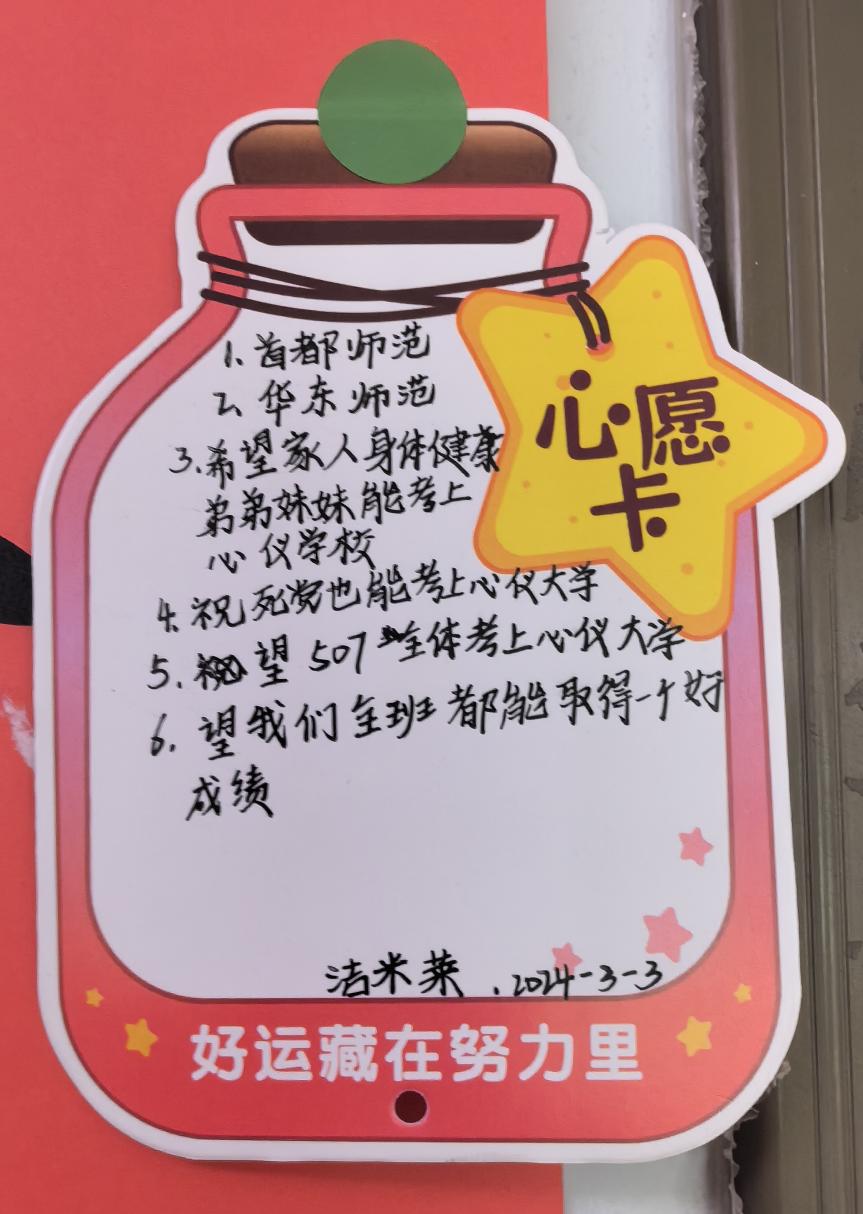 心愿
卡
1. 首都师范
2. 华东师范
3. 希望家人身体健康
弟弟妹妹能考上
心仪学校
4. 祝死党也能考上心仪大学
5. 望 507 全体考上心仪大学
6. 望我们全班都能取得一个好
成绩
洁米莱 . 2024-3-3
好运藏在努力里